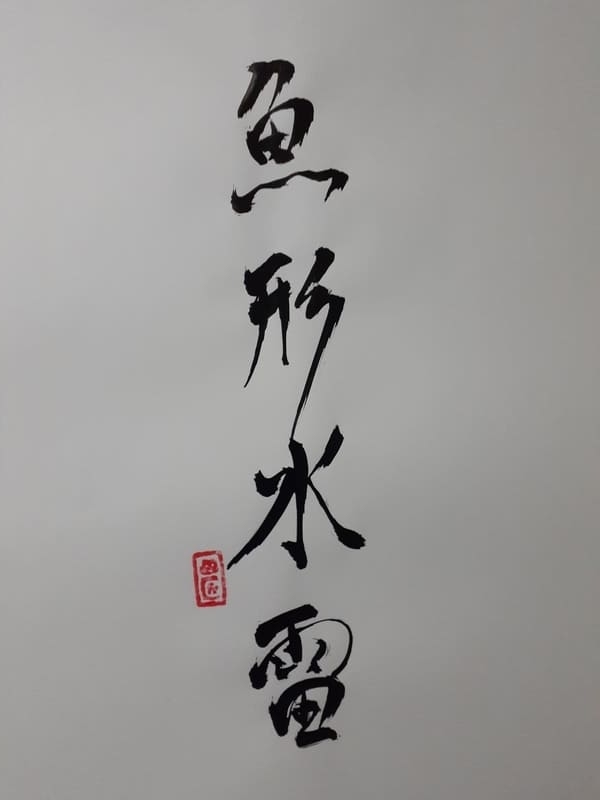 魚形水雷